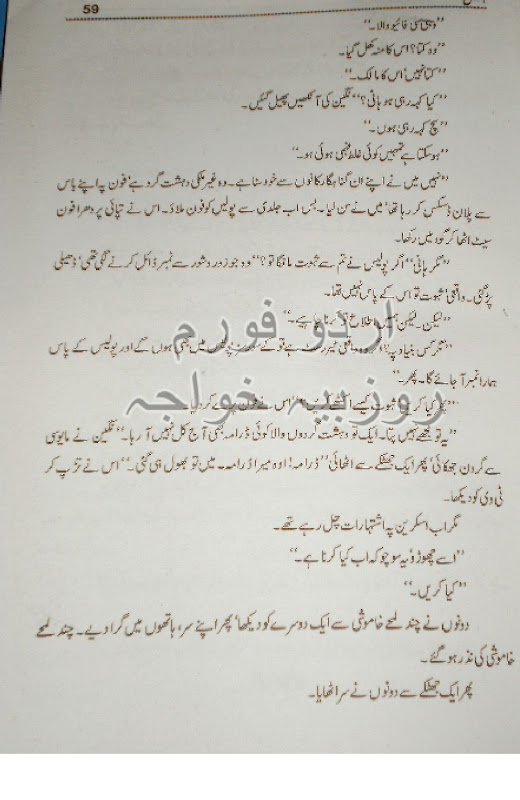 59
”وہی سی فائیو والا۔“
”وہ کتا؟ اس کا منہ کھل گیا۔
”کتا نہیں‘ اس کا مالک۔“
”کیا کہہ رہی ہو ہانی؟“ نگین کی آنکھیں پھیل گئیں۔
”سچ کہہ رہی ہوں۔“
”ہوسکتا ہے تمہیں کوئی غلط فہمی ہوئی ہو۔“
”نہیں میں نے اپنے ان گناہگار کانوں سے خود سنا ہے۔ وہ غیر ملکی دہشت گرد ہے‘ فون پہ اپنے باس
سے پلان ڈسکس کر رہا تھا‘ میں نے سن لیا۔ بس اب جلدی سے پولیس کو فون ملاؤ۔ اس نے تپائی پر دھرا فون
سیٹ اٹھا کر گود میں رکھا۔
”مگر ہانی“ اگر پولیس نے تم سے ثبوت مانگا تو؟“ وہ جو زور و شور سے نمبر ڈائل کرنے لگی تھی‘ ڈھیلی
پڑ گئی۔ واقعی‘ ثبوت تو اس کے پاس نہیں تھا۔
”لیکن۔ لیکن ہمیں اطلاع تو کرنا چاہیے۔“
”مگر کس بنیاد پہ؟ اگر وہ واقعی ٹیررسٹ ہے تو اس کے سورسز پولیس میں بھی ہوں گے اور پولیس کے پاس
ہمارا نمبر آجائے گا۔ پھر۔“
”پھر کیا کریں؟ ثبوت کیسے اکٹھے کریں؟“ اس نے فون پرے کر دیا۔
”یہ تو مجھے نہیں پتا۔ ایک تو دہشت گردوں والا کوئی ڈرامہ بھی آج کل نہیں آ رہا۔“ نگین نے مایوسی
سے گردن جھکائی‘ پھر ایک جھٹکے سے اٹھائی ”ڈرامہ! اوہ میرا ڈرامہ۔ میں تو بھول ہی گئی۔“ اس نے تڑپ کر
ٹی وی کو دیکھا۔
مگر اب اسکرین پہ اشتہارات چل رہے تھے۔
”اسے چھوڑو‘ یہ سوچو کہ اب کیا کرنا ہے۔“
”کیا کریں۔“
دونوں نے چند لمحے خاموشی سے ایک دوسرے کو دیکھا‘ پھر اپنے سر‘ ہاتھوں میں گرا دیے۔ چند لمحے
خاموشی کی نذر ہو گئے۔
پھر ایک جھٹکے سے دونوں نے سر اٹھایا۔
اردو فورم
روزبیہ خواجہ